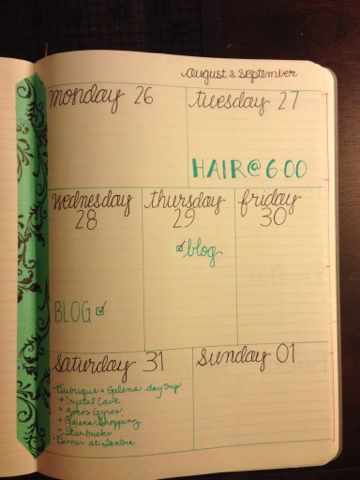 august & september
monday 26
tuesday 27
HAIR@6:00
wednesday
28
thursday
29
friday
30
blog
BLOG
saturday 31
sunday 01
Dubuque & Galena day trip
Crystal Cave
Gyros
Galena Shopping
Starbucks
Dinner at